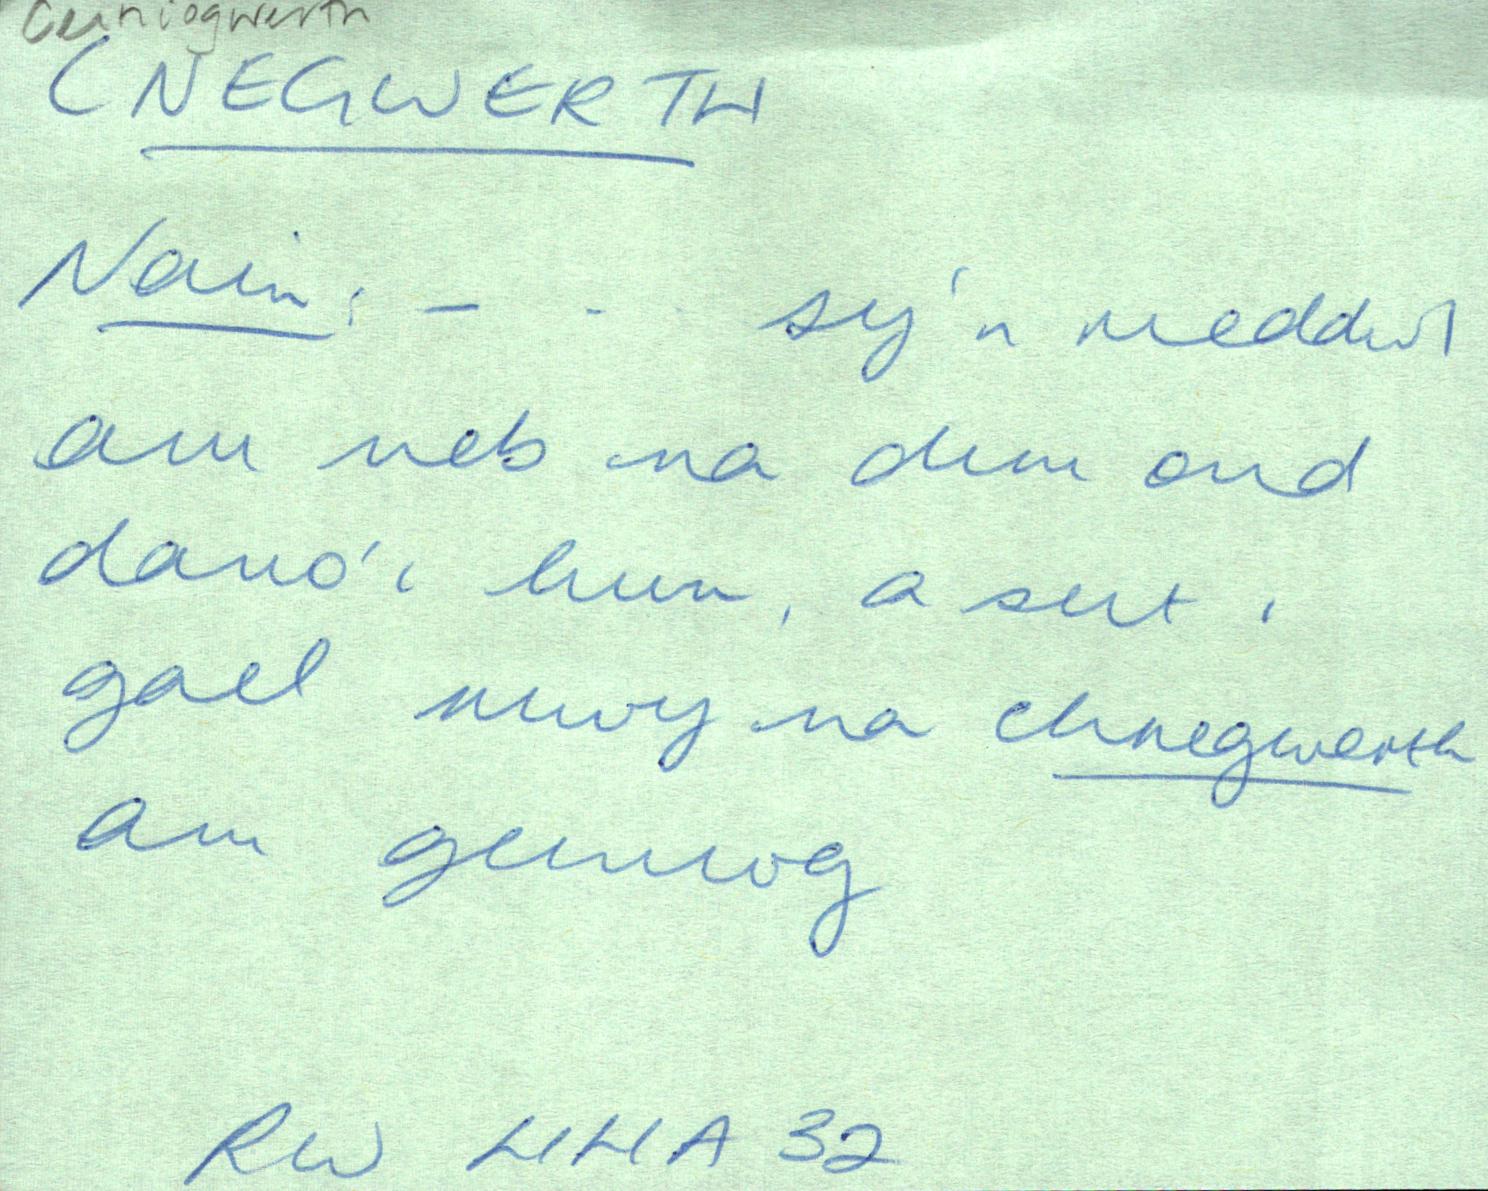 Ceiniogwerth
CNEGWERTH
Nain: - . . sy'n meddwl
am neb na dim ond
dano'i hun, a sut i
gael mwy na chnegwerth
am geiniog
RW HHA 32